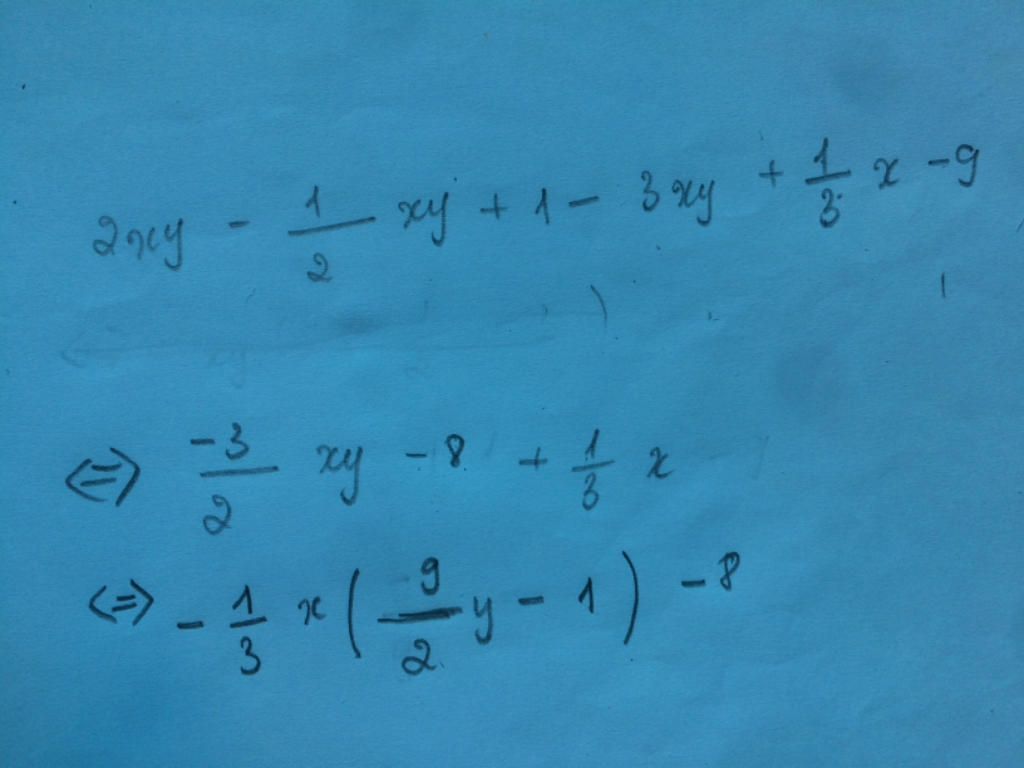 2xy - 1/2 xy + 1 - 3xy + 1/3 x - 9
<=> -3/2 xy - 8 + 1/3 x
<=> - 1/3 x ( 9/2 y - 1 ) - 8